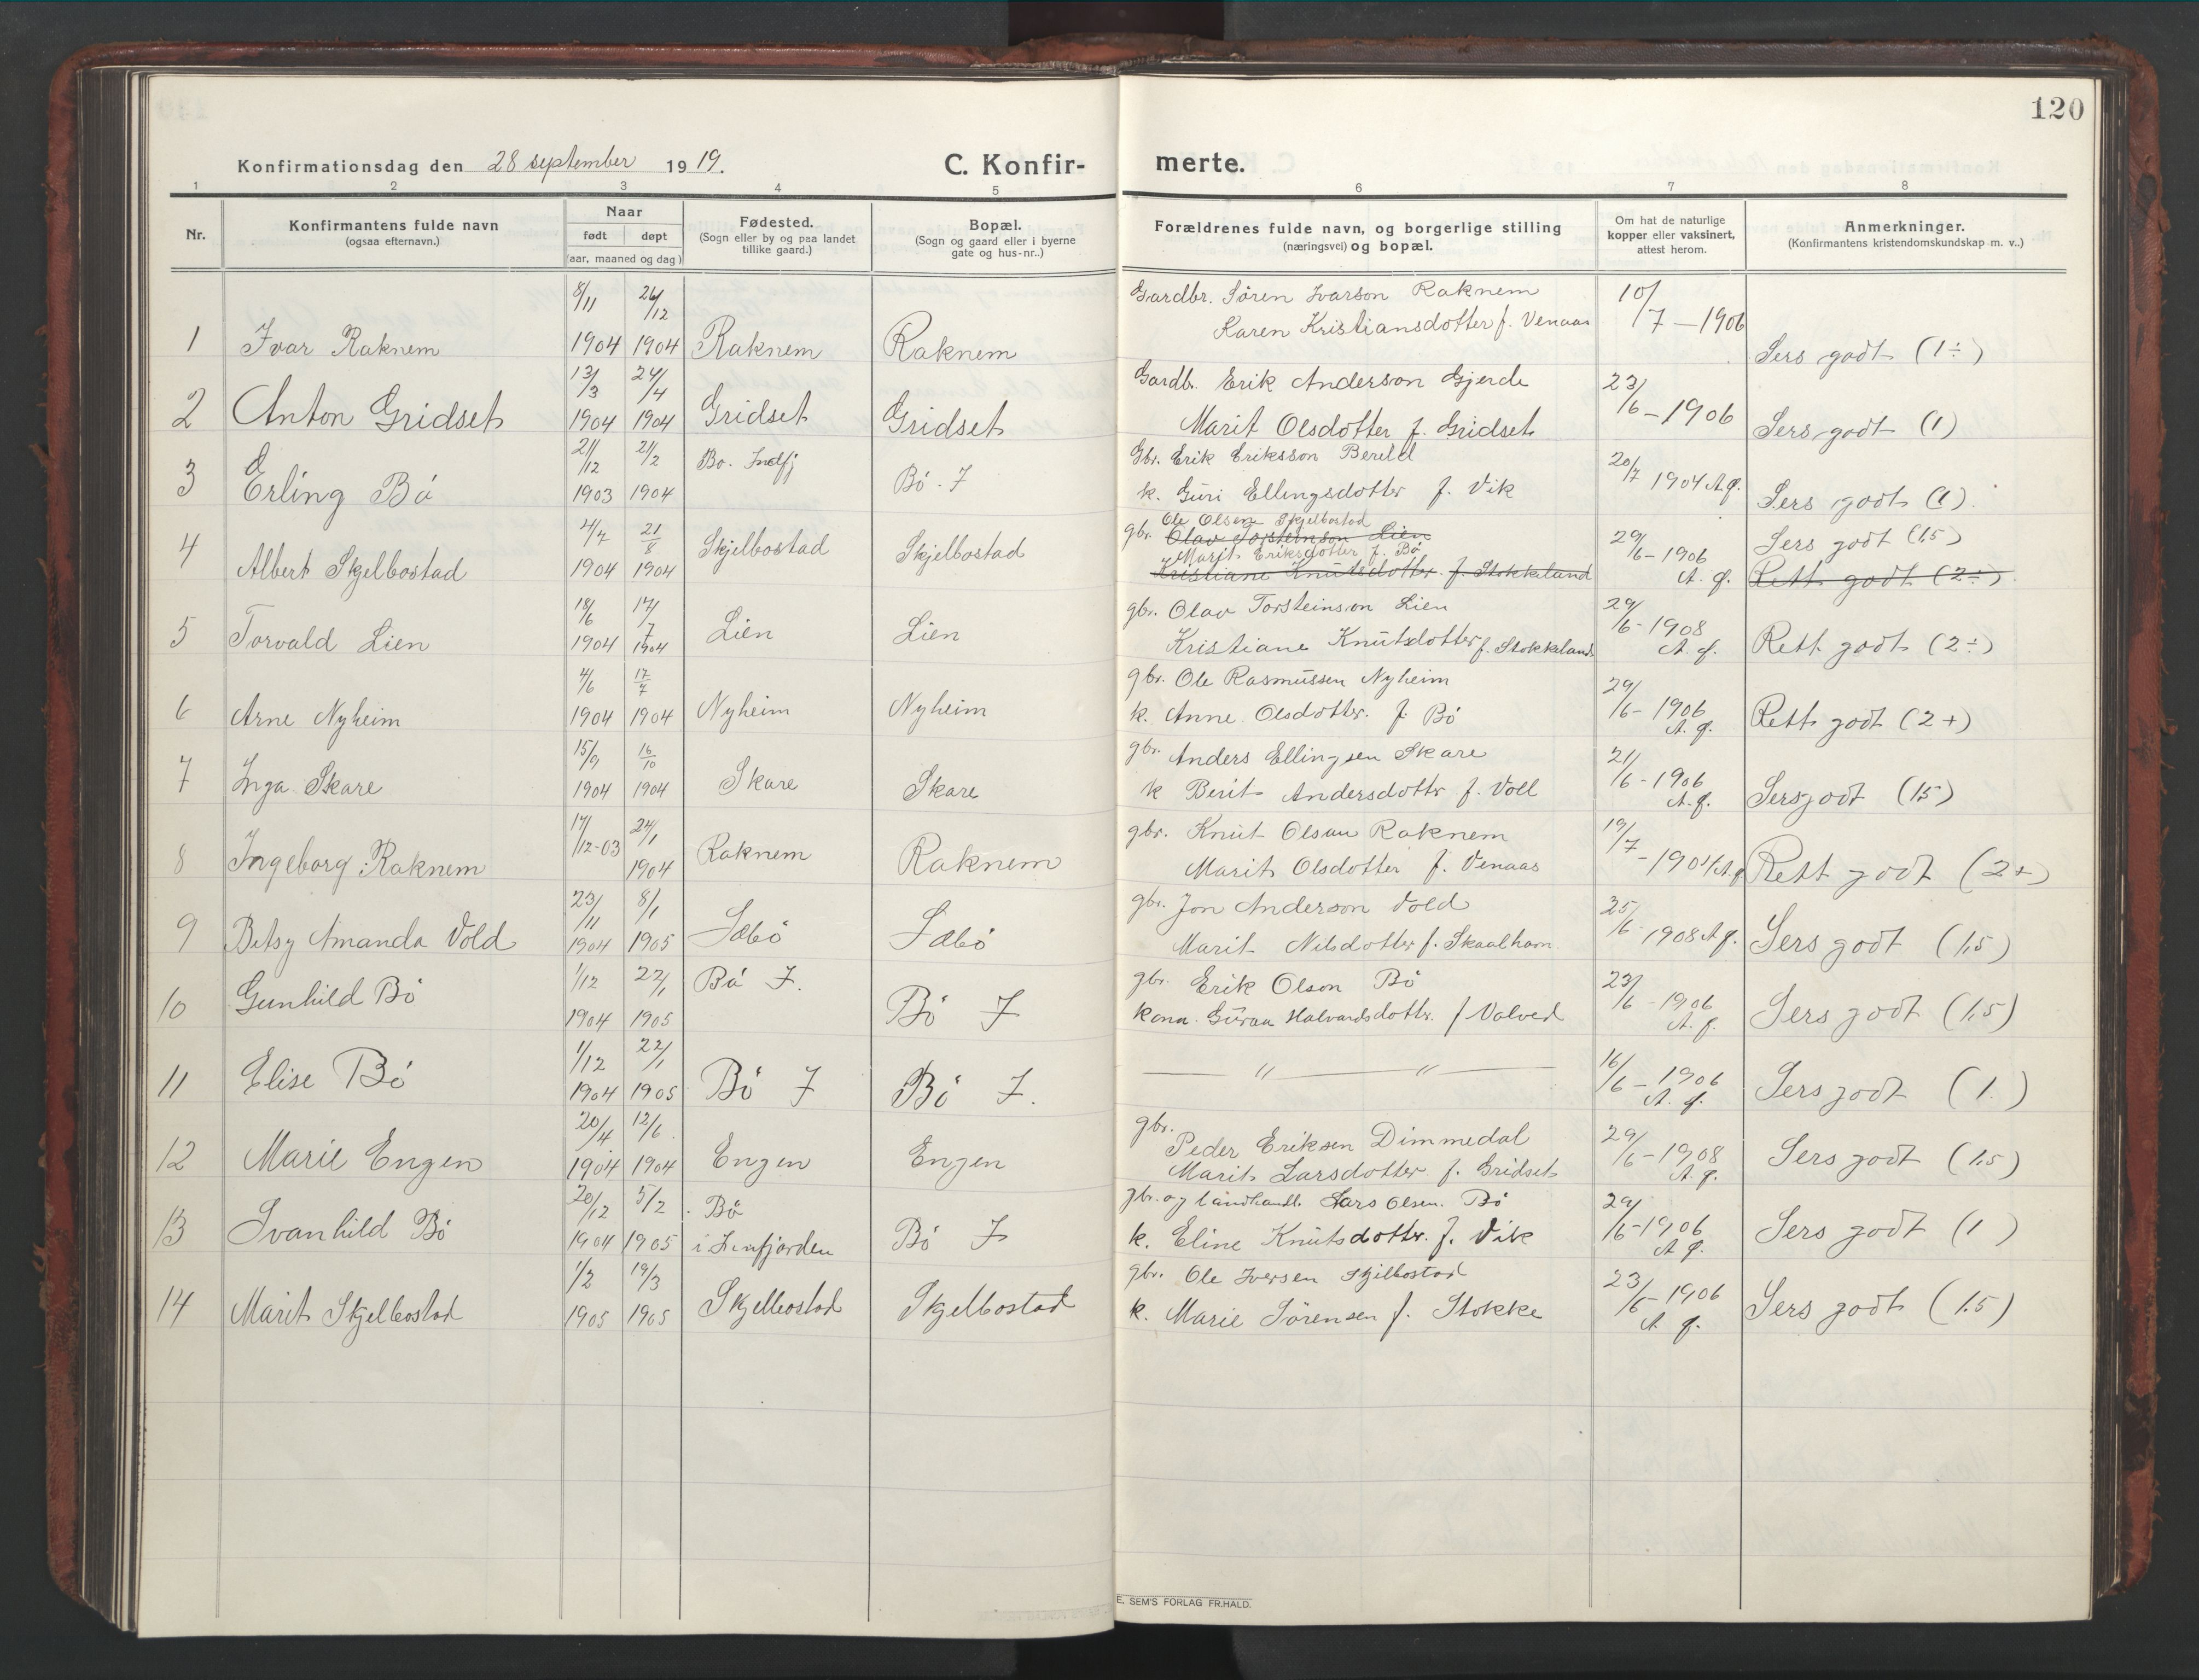 120
Konfirmationsdag den 28 september 1919.
C. Konfir-merte.
1 2 3 4 5 6 7 8
Nr.
Konfirmantens fulde navn
(ogsaa efternavn.)
Naar
født døpt
(aar, maaned og dag)
Fødested.
(Sogn eller by og paa landet
tillike gaard.)
Bopæl.
(Sogn og gaard eller i byerne
gate og hus-nr..)
Forældrenes fulde navn, og borgerlige stilling
(næringsvei) og bopæl.
Om hat de naturlige
kopper eller vaksinert,
attest herom.
Anmerkninger.
(Konfirmantens kristendomskundskap m. v..)
8/11 26/12 Gardbr. Søren Ivarson Raknem 10/7 - 1906
1 Ivar Raknem 1904 1904 Raknem Raknem Karen Kristiansdotter f. Venaas Sers godt (1÷)
13/3 24/4 Gardb. Erik Anderson Gjerde 23/6 - 1906
2 Anton Gridset 1904 1904 Gridset Gridset Marit Olsdotter f. Gridset Sers godt (1)
21/12 21/2 Bø. Indfj Gbr. Erik Eriksson Berild 20/7 1904 A.q.
3 Erling Bø 1903 1904 Bø. I k. Guri Ellingsdotter f. Vik Sers godt (1)
Ole Olsen Skjelbostad
4/7 21/8 gbr. Olav Torsteinson Lien 29/6 - 1906 Sers godt (1.5)
Marit Eriksdotter f. Bø
4 Albert Skjelbostad 1904 1904 Skjelbostad Skjelbostad Kristiane Knutsdotter f. Stokkeland A. q. Rett godt (2÷)
18/6 17/7 gbr. Olav Torsteinson Lien 29/6 - 1908
5 Torvald Lien 1904 1904 Lien Lien Kristiane Knutsdotter f. Stokkeland A. q. Rett godt (2÷)
4/6 17/7 gbr. Ole Rasmussen Nyheim 29/6 - 1906
6 Arne Nyheim 1904 1904 Nyheim Nyheim k. Anne Olsdotter. f. Bø A. q. Rett godt (2+)
15/9 16/10 gbr. Anders Ellingsen Skare 21/6 - 1906
7 Inga Skare 1904 1904 Skare Skare k Berit Andersdottr f. Voll A. q. Sers godt (1.5)
17/12-03 24/1 gbr. Knut Olsen Raknem 19/7
8 Ingeborg Raknem 1904 Raknem Raknem Marit Olsdotter f. Venaas A. q. Rett godt (2+)
23/11 8/1 gbr. Jon Anderson Vold 25/6 - 1908 A. q.
9 Betsy Amanda Vold 1904 1905 Sæbø Sæbø Marit Nilsdotter f. Skaalhavn Sers godt (1.5)
1/12 22/1 Bø I. gbr. Erik Olson Bø 23/6 - 1906
10 Gunhild Bø 1904 1905 Bø I kona Halvardsdottr. f Valved A. q. Sers godt (1.5)
1/12 22/1 16/6 - 1906
11 Elise Bø 1904 1905 Bø I Bø I. — " — " — A. q. Sers godt (1)
20/4 12/6 gbr. Peder Eriksen Dimmedal 29/6 - 1908
12 Marie Engen 1904 1904 Engen Engen Marit Larsdotter f. Gridset A. q. Sers godt (1.5)
20/12 5/2 Bø gbr. og landhandl. Lars Olsen. Bø 29/6 - 1906
13 Svanhild Bø 1904 1905 i Bø I k. Eline Knutsdottr. f. Vik A. q. Sers godt (1)
1/2 19/3 gbr. Ole Iversen Skjelbostad 23/6 - 1906
14 Marit Skjelbostad 1905 1905 Skjelbostad Skjelbostad k. Marie Sørensen f. Stokke A. q. Sers godt (1.5)
E. SEM'S FORLAG FR.HALD.